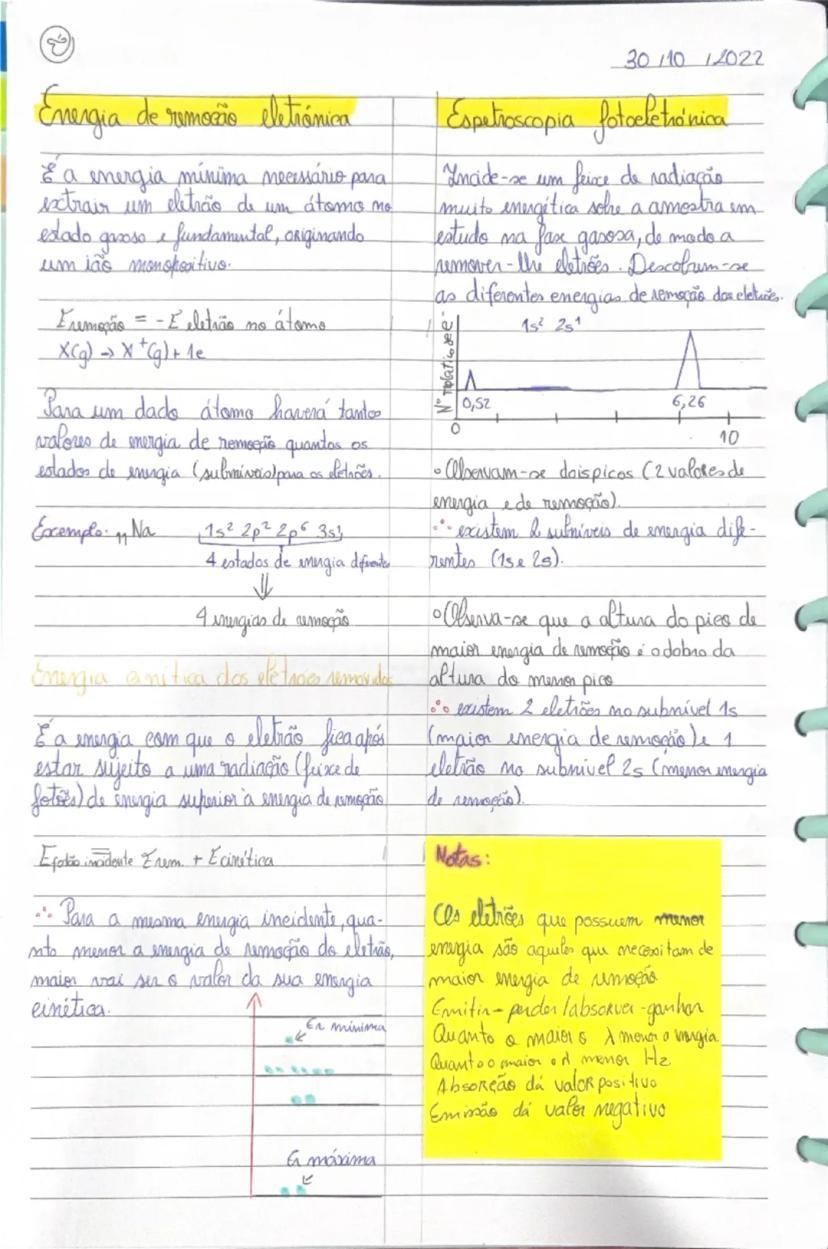 30/10/2022
Energia de remoção eletrónica
É a energia mínima necessário para
extrair um eletrão de um átomo no
estado gasoso e fundamental, originando
um ião monopositivo.
Eremoção = - E eletrão no átomo
X(g) → X⁺(g) + 1e
Para um dado átomo haverá tantos
valores de energia de remoção quantos os
estados de energia (subníveis) para os eletrões.
Exemplo: ₁₁Na 1s² 2p² 2p⁶ 3s¹
4 estados de energia diferentes
⇓
4 energias de remoção
Energia cinética dos eletrões removidos
É a energia com que o eletrão fica após
estar sujeito a uma radiação (feixe de
fotões) de energia superior à energia de remoção
Efotão incidente = Erem. + Ecinética
∴ Para a mesma energia incidente, qua-
nto menor a energia de remoção do eletrão,
maior vai ser o valor da sua energia
cinética.
Er mínima
Er máxima
Espetroscopia fotoeletrónica
Incide-se um feixe de radiação
muito energética sobre a amostra em
estudo na fase gasosa, de modo a
remover-lhe eletrões. Descobrem-se
as diferentes energias de remoção dos eletrões.
Nº relativo de e⁻
1s² 2s¹
0,52 6,26
0 10
• Observam-se dois picos (2 valores de
energia e de remoção).
∴ existem 2 subníveis de energia dife-
rentes (1s e 2s).
• Observa-se que a altura do pico de
maior energia de remoção é o dobro da
altura do menor pico
∴ existem 2 eletrões no subnível 1s
(maior energia de remoção) e 1
eletrão no subnível 2s (menor energia
de remoção).
Notas:
Os eletrões que possuem menor
energia são aqueles que necessitam de
maior energia de remoção
Emitir - perder / absorver - ganhar
Quanto o maior o λ menor a energia
Quanto o maior o λ menor Hz
Absorção dá valor positivo
Emissão dá valor negativo